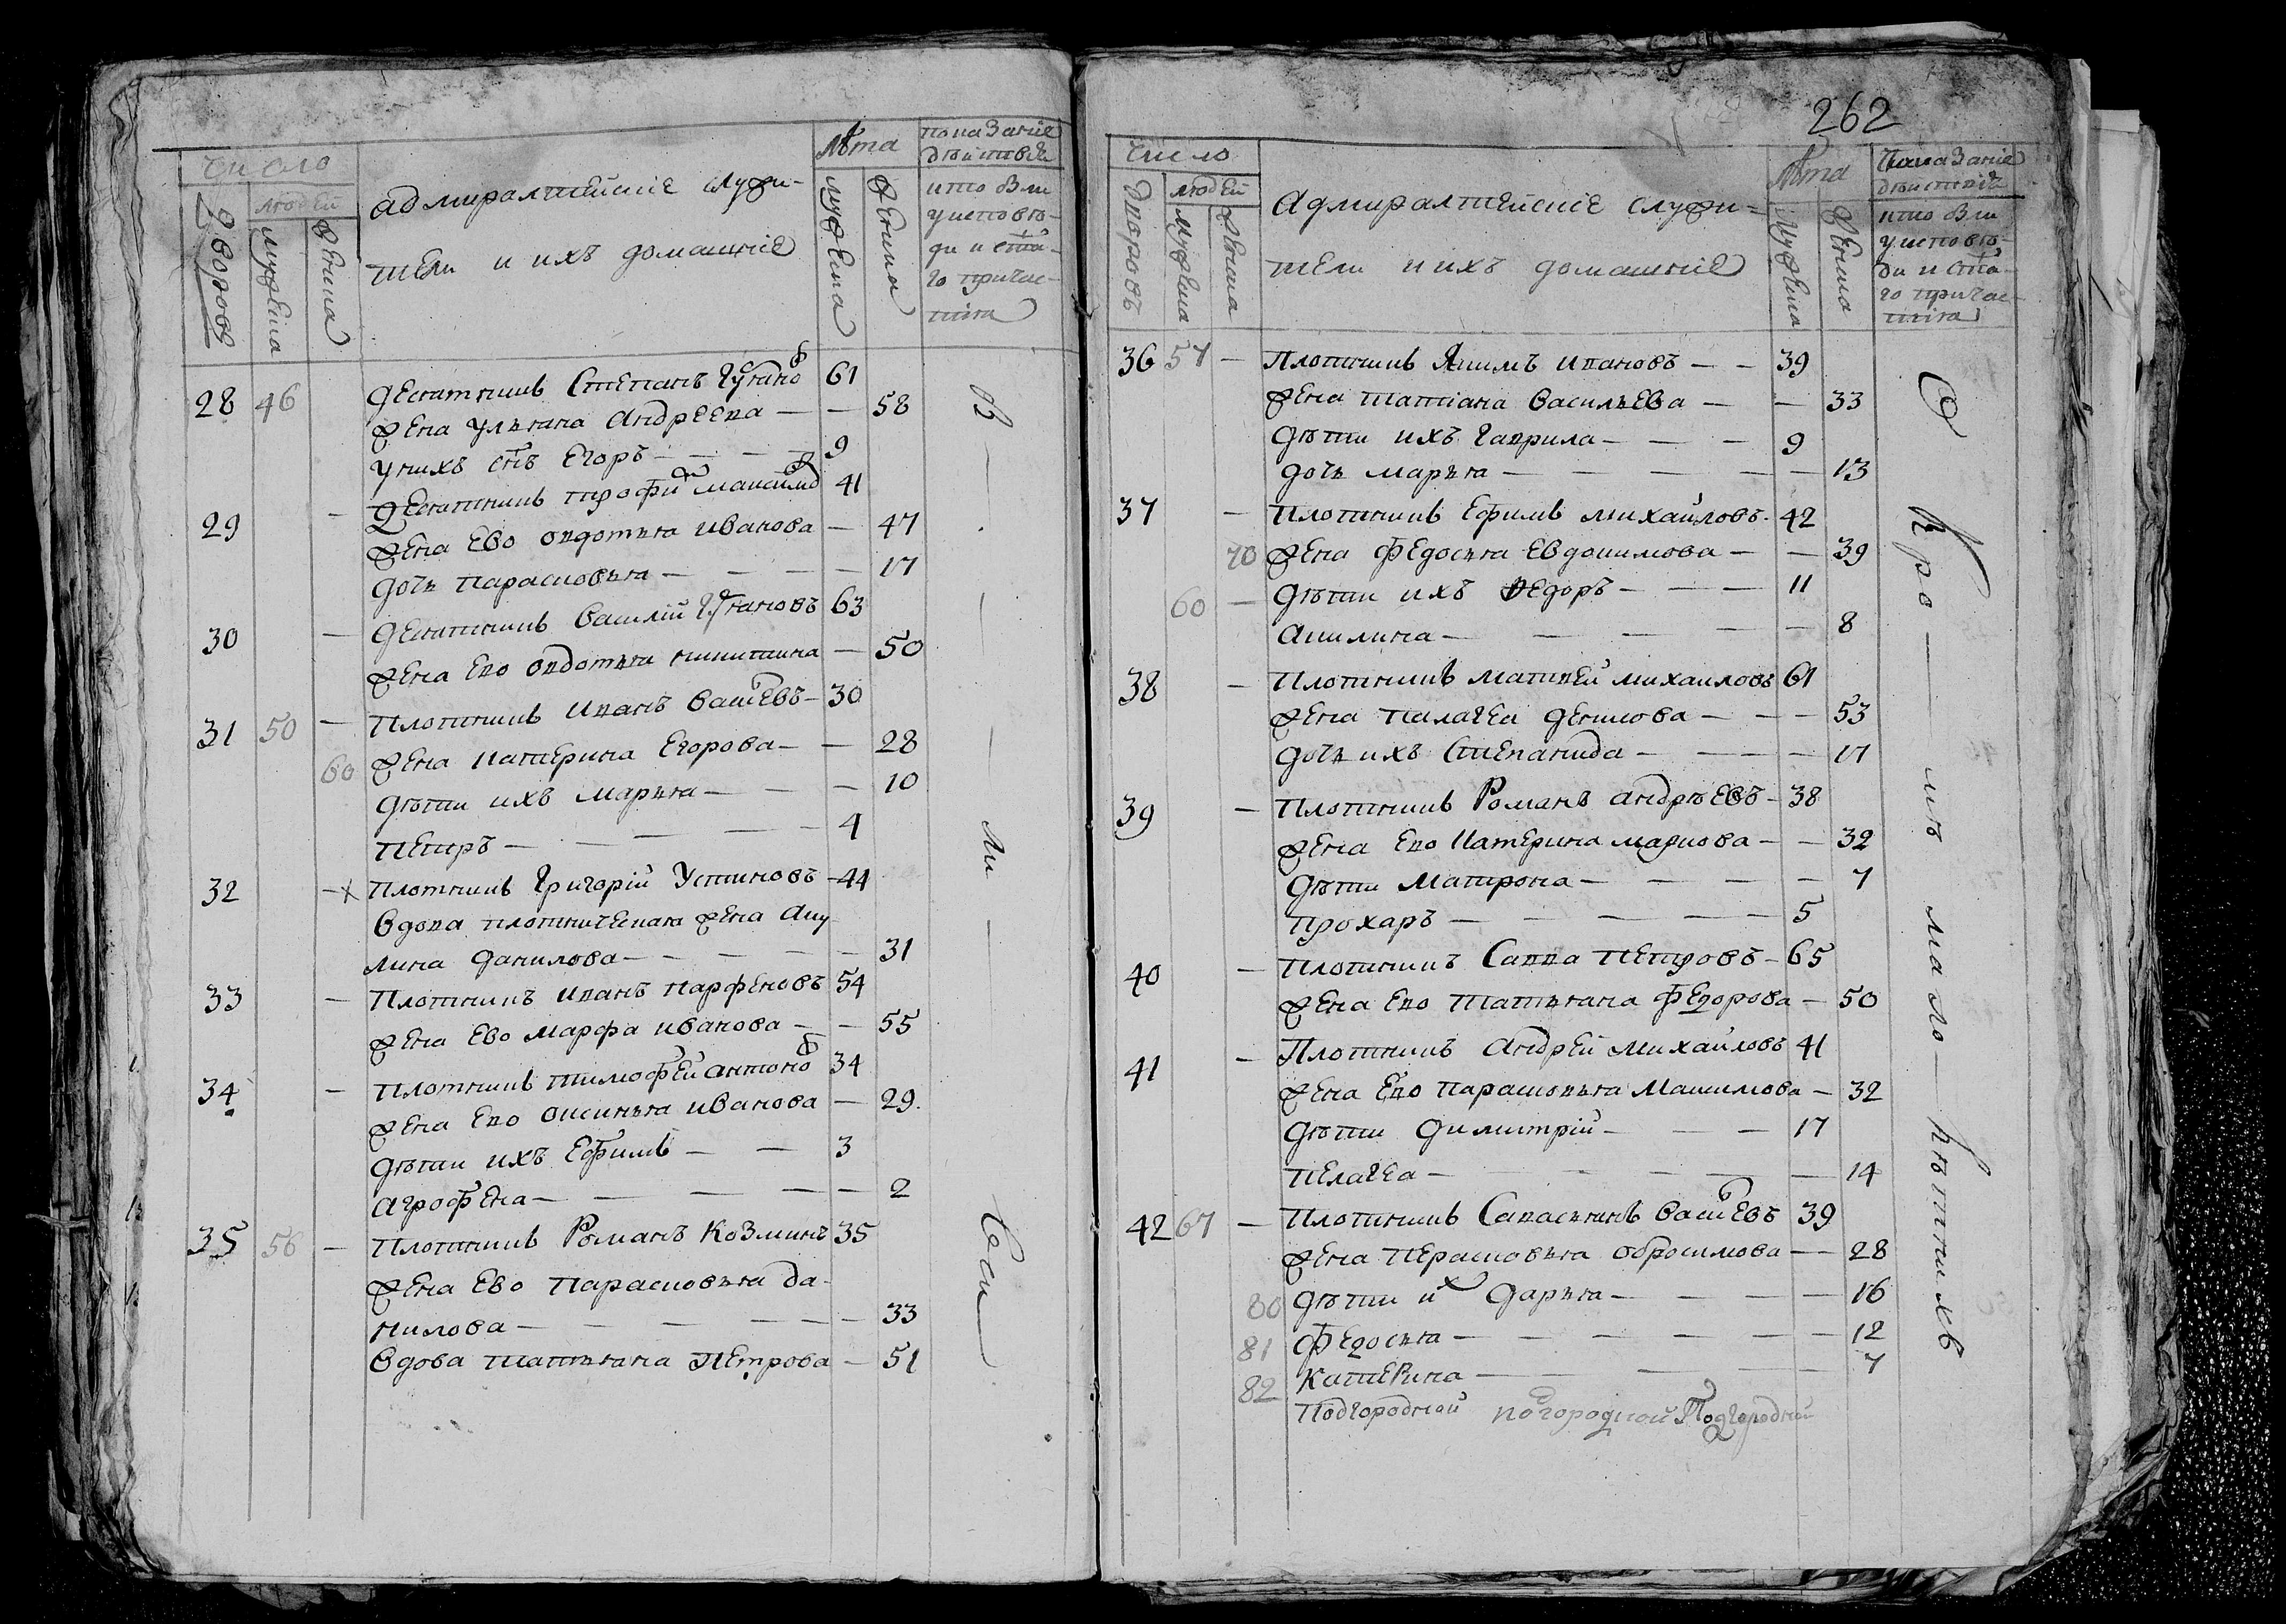 число
Дворовъ
людей
мужеска
женска
адмиралтейские служи-
тели и ихъ домашние
Лѣта
мужеска
женска
показание
дѣйствия
кто были
у исповѣ-
ди и ста-
го причас-
тия
28 46 десятникъ Степанъ Гужано в 61
жена Ульяна Андреева — — 58
у нихъ снъ Егоръ — — — — 9
29 — десятникъ трофи м максимо в 41
жена Ево овдотья иванова — 47
дочь парасковья — — — — 17
30 — десятникъ Василий Гужановъ 63
жена Ево овдотья никитина — 50
31 50 — плотникъ Иванъ Васиlевъ — 30
60 жена катерина Егорова — — 28
дѣти ихъ марья — — — 10
петръ — — — — 4
32 — х плотникъ Григорий Устиновъ — 44
вдова плотническая жена Аку
лина данилова — — — — — 31
33 — плотникъ иванъ парфеновъ 54
жена Ево марфа иванова — — 55
34 — плотникъ тимофей антоно в 34
жена Ево оксинья иванова — 29
дѣти ихъ Ефимъ — — 3
агрофена — — — — — 2
35 56 — плотникъ Романъ козминъ 35
жена Ево парасковья да-
нилова — — — — — — 33
вдова татьяна петрова — 51
в — — — ли — Соси
262
число
Дворовъ
людей
мужеска
женска
Адмиралтейские служи-
тели и ихъ домашние
Лѣта
мужеска
женска
показание
дѣйствия
кто были
у исповѣ-
ди и ста-
го причас-
тия
36 57 — плотникъ Якимъ ивановъ — — 39
жена татиана васильева — — 33
дѣти ихъ гаврила — — — 9
дочь марья — — — — — 13
37 — плотникъ Ефимъ михайловъ — 42
70 жена федосья Евдокимова — — 39
60 — дѣти ихъ федоръ — — — 11
акилина — — — — — 8
38 — плотникъ матвей михаиловъ 61
жена палагея денисова — — — 53
дочь ихъ Степанида — — — — 17
39 — плотникъ Романъ андрѣевъ — 38
жена Ево катерина маркова — — 32
дѣти Матрона — — — — 7
прохаръ — — — — — 5
40 — плотникъ Савва петровъ — 65
жена Ево татьяна федорова — 50
41 — Плотникъ Андрей михайловъ 41
жена Ево парасковья Макимова — 32
дѣти Димитрий — — — 17
пелагея — — — — — 14
42 67 — плотникъ Савасьянъ васиlевъ 39
жена перасковья обросимова — — 28
80 дѣти и х дарья — — — — 16
81 федосья — — — — — — 12
82 катерина — — — — — 7
подгородной погородной Подгородной